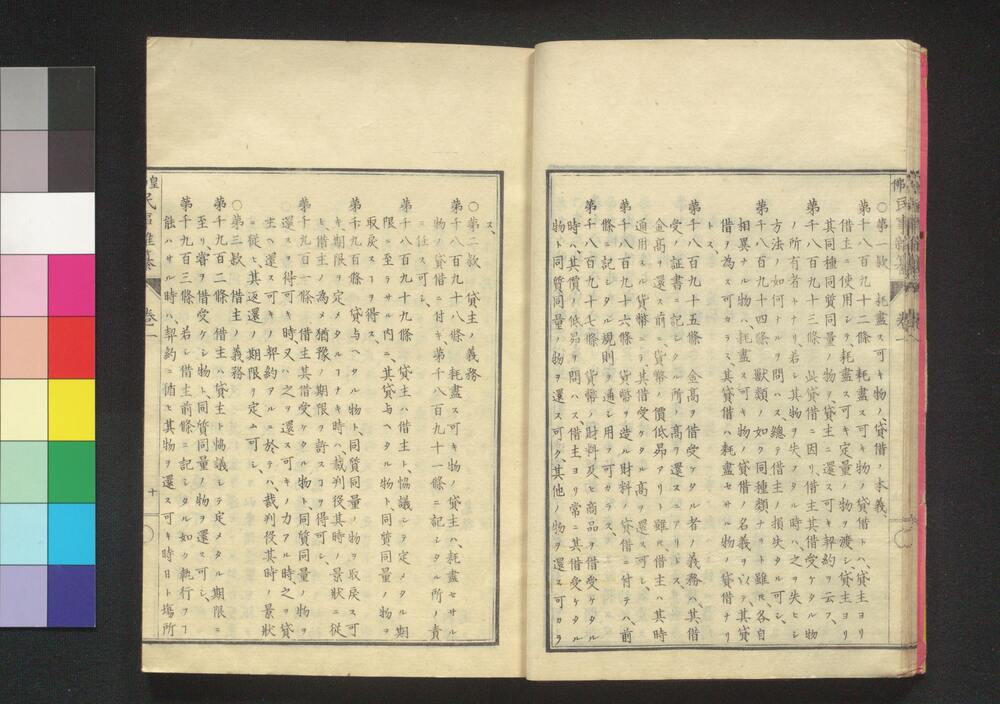 ○第一款　耗盡ス可キ物ノ貸借ノ本義、
第千八百九十二條　耗盡ス可キ物ノ貸借トハ、貸主ヨリ
借主ニ使用シヲ耗盡ス可キ定量ノ物ヲ渡シ、貸主ヨリ
其同種同質同量ノ物ヲ貸主ニ還ス可キ契約ヲ云フ、
第千八百九十三條　此貸借ニ因リ、借主其借受ケタル物
ノ所有者トナリ若シ其物ヲ失フタル時ハ、之ヲ失ヒシ
方法ノ如何トナルヲ問ハス總テ借主ノ損失タル可シ、
第千八百九十四條　獸類ノ如ク同種類ナリト雖ﾓ各自
相異ナル物ハ、耗盡ス可キ物ノ貸借ノ名義ヲ以テ其貸
借ヲ為ス可カラス其貸借ハ耗盡セサル物ノ貸借ナリ
トス、
第千八百九十五條　金高ヲ借受ケタル者ノ義務ハ其借
受ノ証書ニ記シタル所ノ高ヲ還スニアリトス、
金高ヲ還ス前ニ、貨幣ノ價低昂アリト雖ﾓ借主ハ其時
通用スル貨幣ニテ其借受ケタル高ヲ還ス可シ、
第千八百九十六條　貨幣ヲ造ル財料ノ貸借ニ付テハ、前
條ニ記シタル規則ヲ通シ用フ可カラス、
第千八百九十七條　貨幣ノ財料及ヒ商品ヲ借受ケタル
時ハ其價ノ低昂ヲ問ハス、借主ヨリ常ニ其借受ケタル
物ト同質同量ノ物ヲ還ス可ク、其他ノ物ヲ還ス可カラ
ス、
○第二款　貸主ノ義務
第千八百九十八條　耗盡ス可キ物ノ貸主ハ、耗盡セサル
物ノ貸借ニ付キ第千八百九十一條ニ記シタル所ノ責
ニ任ス可シ、
第千八百九十九條　貸主ハ借主ト協議シテ定メタル期
限ニ至ラサル内ニ、其貸与ヘタル物ト同質同量ノ物ヲ
取戻スヿヲ得ス、
第千九百條　貸与ヘタル物ト同質同量ノ物ヲ取戻ス可
キ期限ヲ定メタルヿナキ時ハ、裁判役其時ノ景狀ニ従
ヒ借主ノ為メ猶豫ノ期限ヲ許スヿヲ得可シ、
第千九百一條　借主其借受ケタル物ト同質同量ノ物ヲ
還スヲ得可キ時又ハ之ヲ還ス可キノ力アル時之ヲ貸
主ヘ還ス可キノ契約アルニ於テハ、裁判役其時ノ景狀
ニ従ヒ其返還ノ期限ヲ定ム可シ、
○第三款　借主ノ義務
第千九百二條　借主ハ貸主ト協議シテ定メタル期限ニ
至リ、甞ヲ借受ケシ物ト同質同量ノ物ヲ還ス可シ、
第千九百三條　若シ借主前條ニ記シタル如ク執行フヿ
能ハサル時ハ、契約ニ循ヒ其物ヲ還ス可キ時日ト塲所
卷一
十